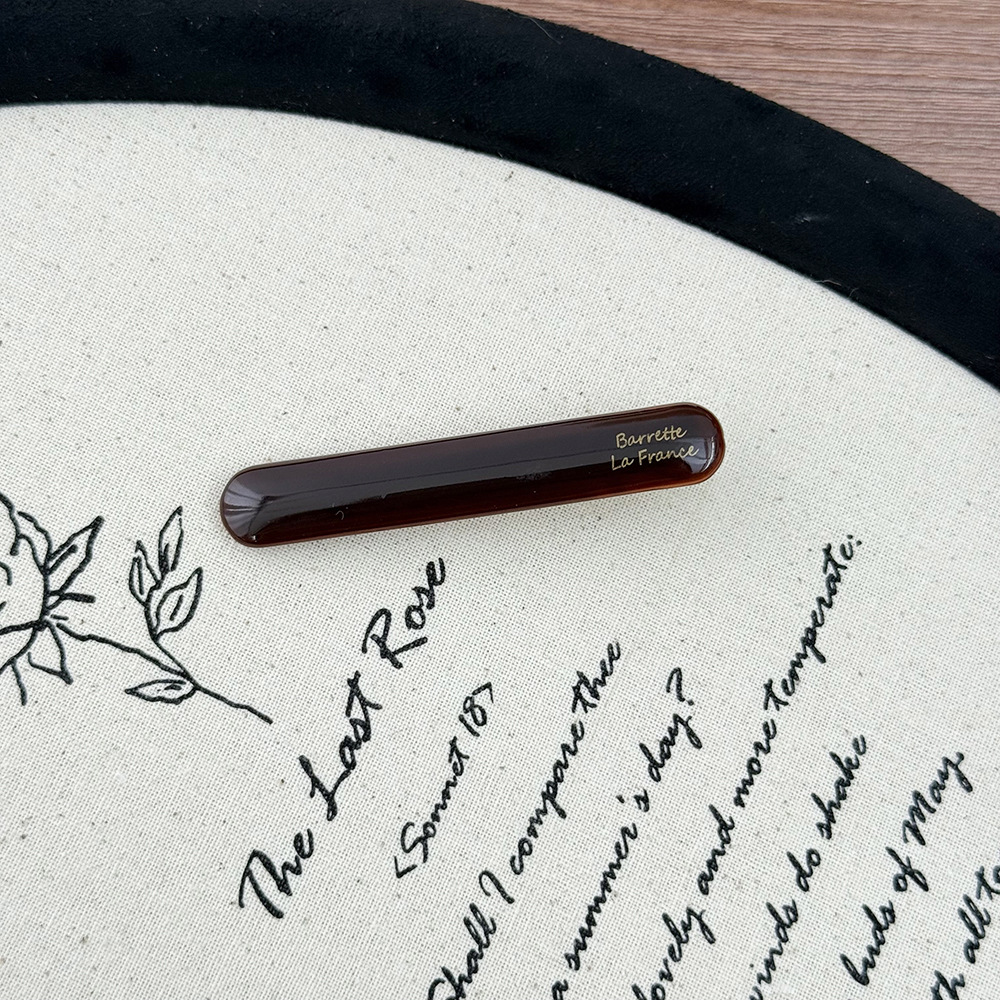 Barrette
La France
The Last Rose
<Sonnet 18>
Shall I compare thee
a summer's day?
lovely and more temperate:
winds do shake
buds of May,
all